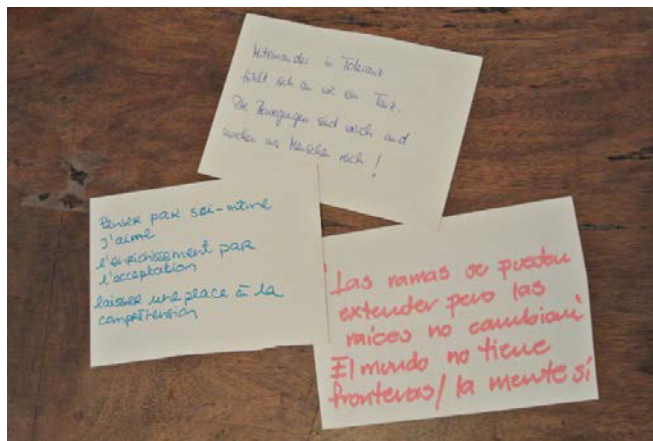 Miteinander in Toleranz
fühlt sich an wie ein Tanz.
Die Bewegungen sind weich und
machen uns Menschen reich!
Penser par soi-même
J'aime
l'enrichissement par
l'acceptation
laisser une place à la
compréhension
Las ramas se pueden
extender pero las
raíces no cambian
El mundo no tiene
fronteras/ la mente sí